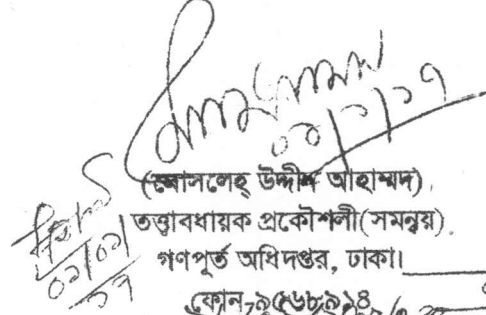 ০১/১/১৭
(মোসলেহ্ উদ্দীন আহাম্মদ)
তত্ত্বাবধায়ক প্রকৌশলী(সমন্বয়)
গণপূর্ত অধিদপ্তর, ঢাকা।
০১/০১/১৭
ফোন-৯৫৬৮৯১৪